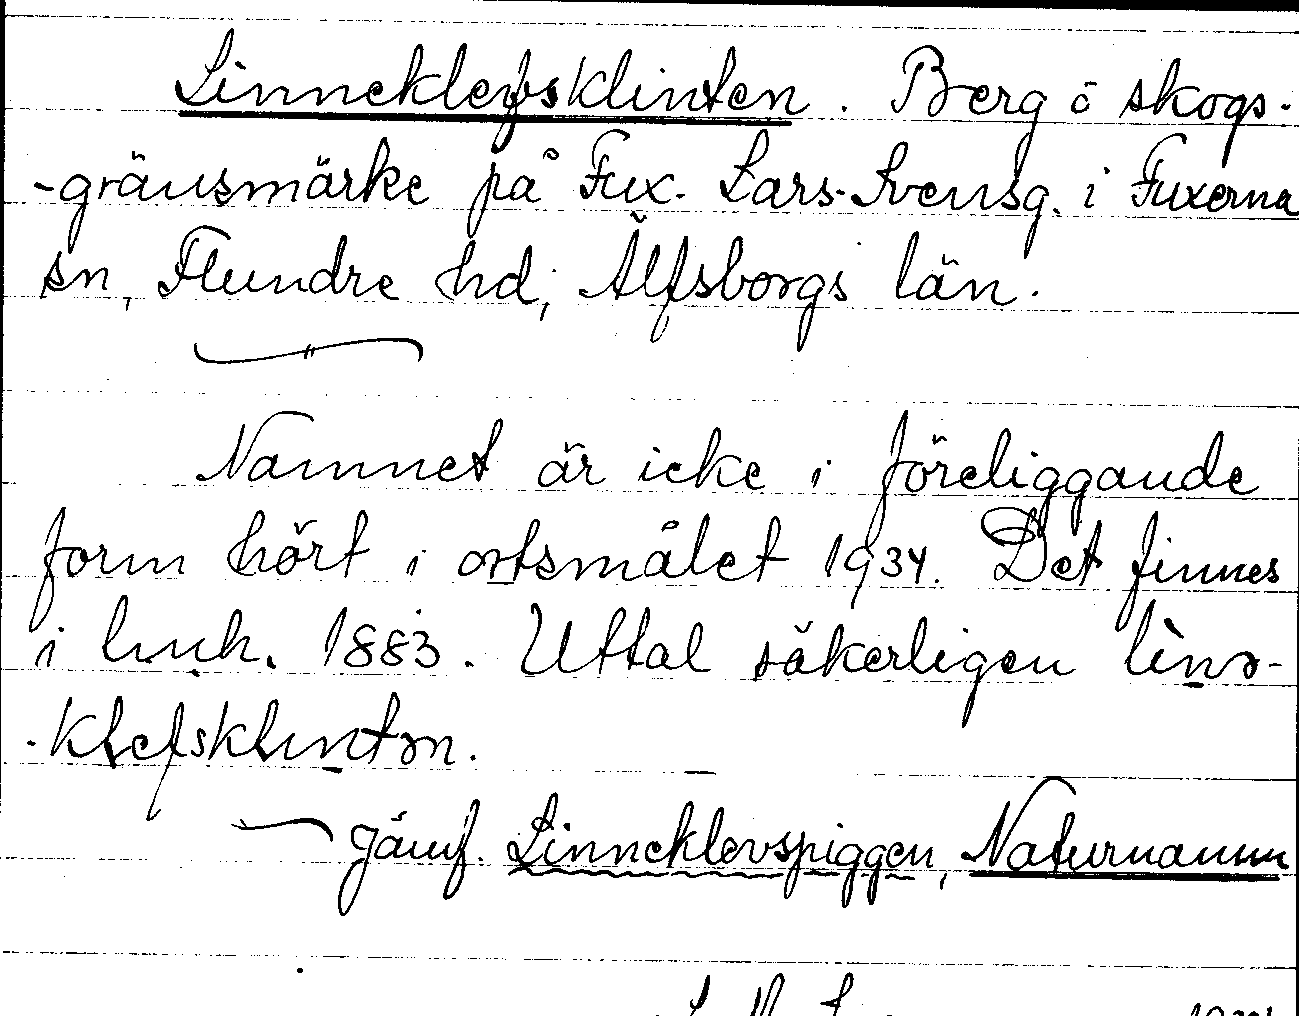 Linneklefsklinten. Berg o skogs-
-gränsmärke på Fux. Lars-Svensg. i Fuxerna
sn, Flundre hd, Älfsborgs län.
Namnet är icke i föreliggande
form hört i ortsmålet 1934. Det finnes
i hmh. 1883. Uttal säkerligen lìnə-
-klefsklintən.
Jämf. Linneklevspiggen, Naturnamn